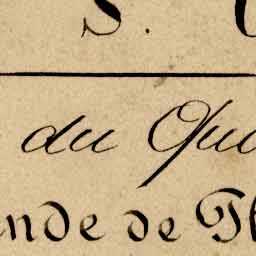 S.
du Qui
nde de Th